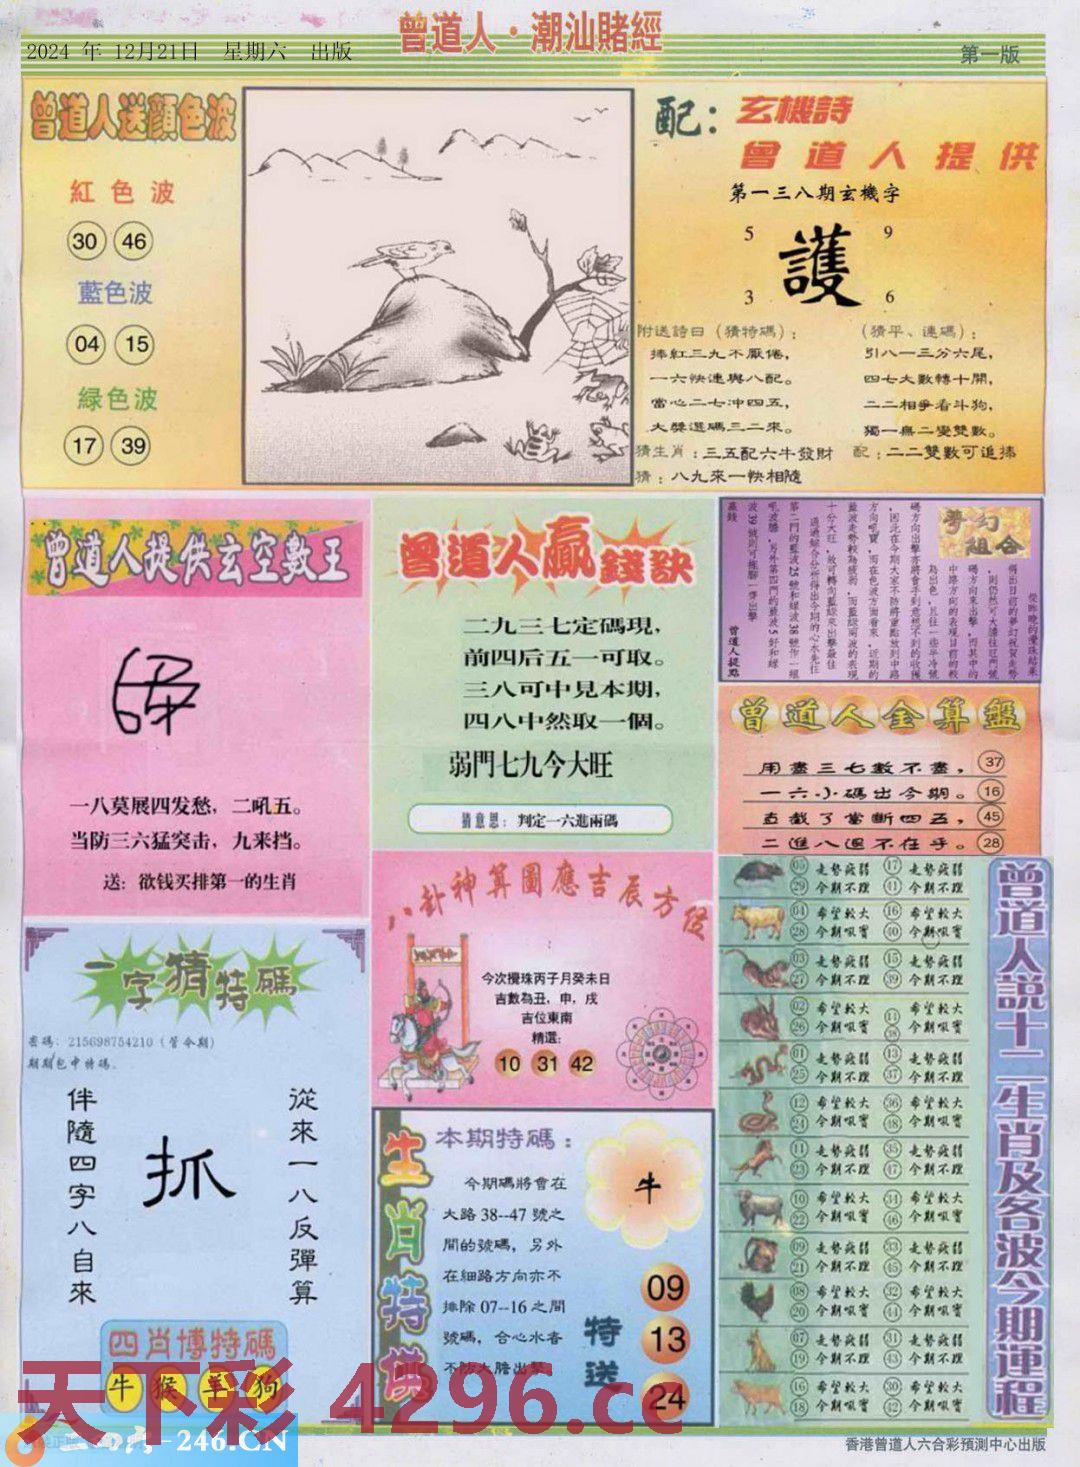 曾道人·潮汕賭經
2024 年 12月21日 星期六 出版
第一版
曾道人送顔色波
紅色波
30 46
藍色波
04 15
緑色波
17 39
配：玄機詩
曾道人提供
第一三八期玄機字
5 9
護
3 6
附送詩曰（猜特碼）：
捧紅三九不厭倦，
一六快連與八配。
當心二七沖四五，
大獎選碼三二來。
猜生肖：三五配六牛發財
猜：八九來一快相隨
（猜平、連碼）：
引八一三分六尾，
四七大數轉十開，
二二相爭看斗狗，
獨一無二變雙數。
配：二二雙數可追捧
曾道人提供玄空數王
一八莫展四发愁，二吼五。
当防三六猛突击，九来挡。
送：欲钱买排第一的生肖
曾道人贏錢訣
二九三七定碼現，
前四后五一可取。
三八可中見本期，
四八中然取一個。
弱門七九今大旺
猜意思：判定一六進兩碼
夢幻組合
曾道人提點
曾道人全算盤
用盡三七數不盡，37
一六小碼出今期。16
直截了當斷四五，45
二進八退不在乎。28
一字猜特碼
密碼：215698754210（管令期）
期期包中特碼。
從來一八反彈算
抓
伴隨四字八自來
四肖博特碼
牛 猴 羊 狗
八卦神算圖應吉辰方位
今次攪珠丙子月癸未日
吉數為丑，申，戌
吉位東南
精選：
10 31 42
生肖特供
本期特碼：
今期碼將會在
大路38--47號之
間的號碼，另外
在細路方向亦不
排除07--16之間
號碼，合心水者
不妨大膽出擊
牛
特送
09
13
24
曾道人説十二生肖及各波今期運程
05 走勢疲弱 17 走勢疲弱
29 今期不理 41 今期不理
04 希望較大 16 希望較大
28 今期吼實 40 今期吼實
03 走勢疲弱 15 走勢疲弱
27 今期不理 39 今期不理
02 希望較大 14 希望較大
26 今期吼實 38 今期吼實
01 走勢疲弱 13 走勢疲弱
25 今期不理 37 今期不理
12 希望較大 36 希望較大
24 今期吼實 48 今期吼實
11 走勢疲弱 35 走勢疲弱
23 今期不理 47 今期不理
10 希望較大 34 希望較大
22 今期吼實 46 今期吼實
09 走勢疲弱 33 走勢疲弱
21 今期不理 45 今期不理
08 希望較大 32 希望較大
20 今期吼實 44 今期吼實
07 走勢疲弱 31 走勢疲弱
19 今期不理 43 今期不理
希望較大 30 希望較大
18 今期吼實 42 今期吼實
天下彩 4296.cc
-246.CN
香港曾道人六合彩預測中心出版